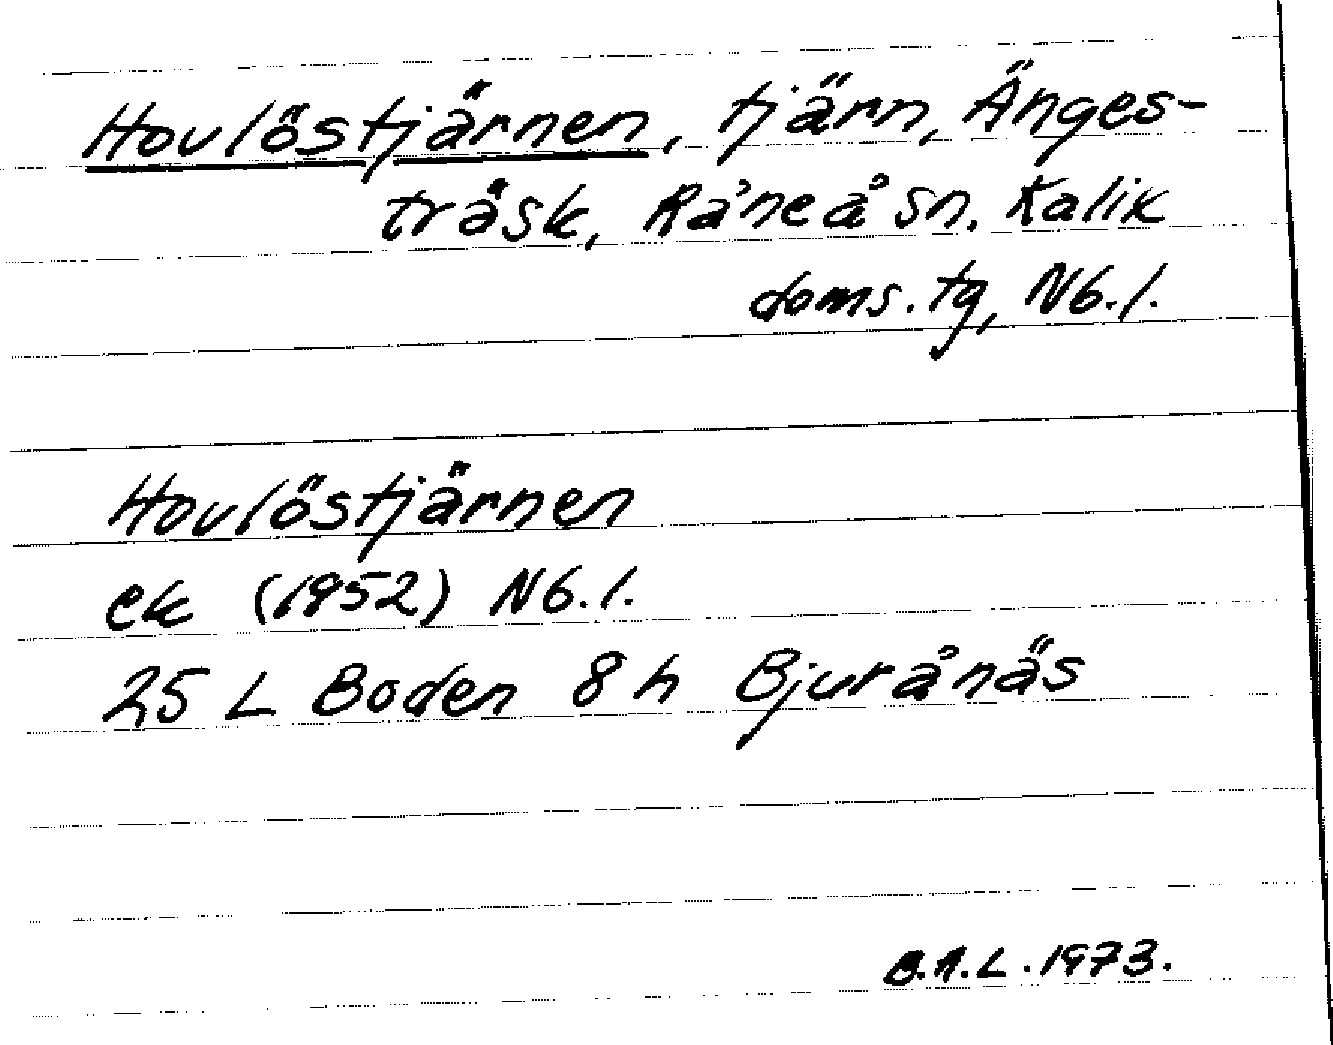 Hovlöstjärnen, tjärn, Änges-
träsk, Råneå sn. Kalix
doms.tg, Nb.l.
Hovlöstjärnen
ek (1952) Nb.l.
25 L Boden 8 h Bjurånäs
B.A.L. 1973.